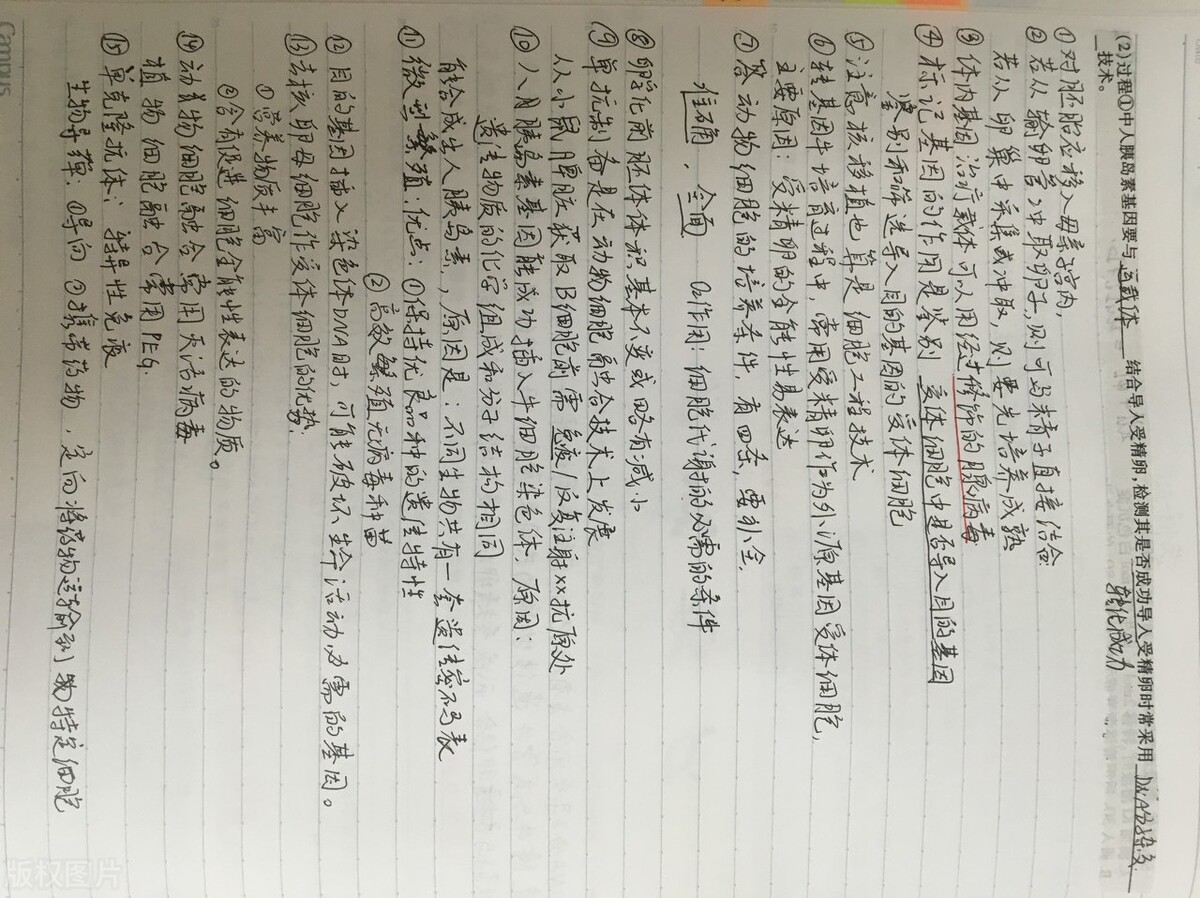 (2)过程①中人胰岛素基因要与 运载体 结合导入受精卵,检测其是否成功导入受精卵时常采用 DNA分子杂交
技术。
转化成功
① 对胚胎应移入母亲宫内,
② 若从输卵管冲取卵子,则可与精子直接结合
若从卵巢中采集或冲取,则要先培养成熟
③ 体内基因治疗载体可以用经过修饰的腺病毒
④ 标记基因的作用是鉴别 受体细胞中是否导入目的基因
鉴别和筛选导入目的基因的受体细胞
⑤ 注意核移植也算是细胞工程技术
⑥ 转基因牛培育过程中,常用受精卵作为外源基因受体细胞,
主要原因:受精卵的全能性易表达
⑦ 答动物细胞的培养条件,有四条,要补全.
准确,全面 O₂作用:细胞代谢的必需的条件
⑧ 孵化前胚体体积基本不变或略有减小
⑨ 单抗制备是在动物细胞融合技术上发展
从小鼠脾脏获取B细胞前需免疫/反复注射xx抗原处
⑩ 人胰岛素基因能成功插入牛细胞染色体,原因:
遗传物质的化学组成和分子结构相同
能合成出人胰岛素,原因是:不同生物共有一套遗传密码表
⑪ 微型繁殖:优点:①保持优良品种的遗传特性
②高效繁殖无病毒种苗
⑫ 目的基因插入染色体DNA时,可能破坏生命活动必需的基因。
⑬ 去核卵母细胞作受体细胞的优势.
①营养物质丰富
②含有促进细胞全能性表达的物质。
⑭ 动物细胞融合常用灭活病毒
植物细胞融合常用PEG.
⑮ 单克隆抗体:特异性免疫
生物导弹:①导向 ②携带药物,定向将药物运输到特定细胞
Campus
版权图片